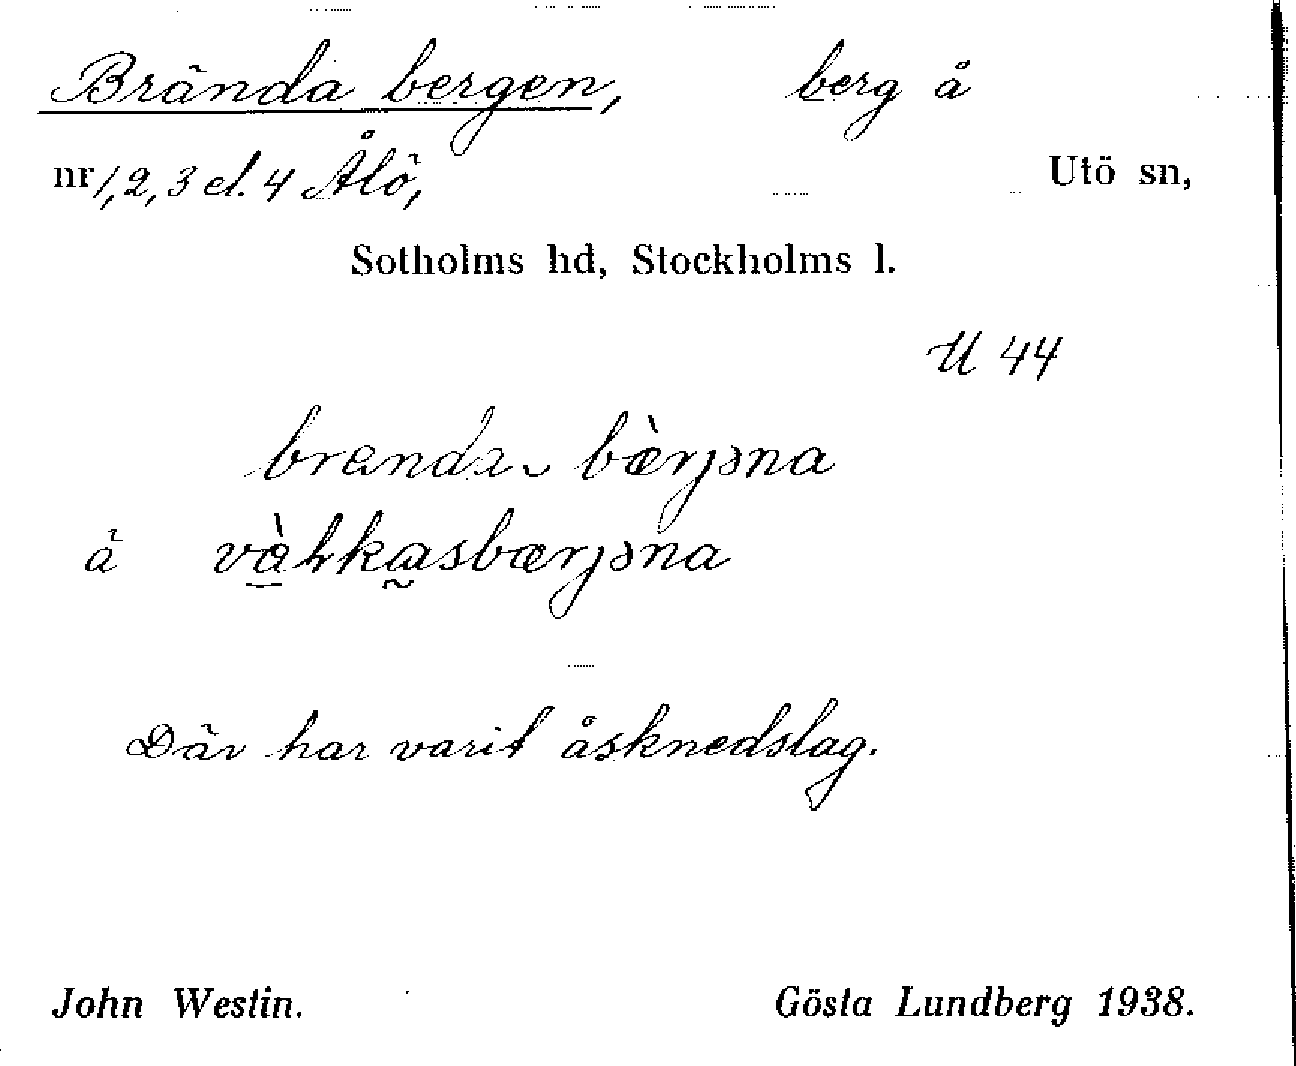 Brända bergen, berg å
nr 1, 2, 3 el. 4 Ålö, Utö sn,
Sotholms hd, Stockholms l.
U 44
brenda‿ bæ̀rjəna
å và̱ɫka̰sbærjəna
Där har varit åsknedslag.
John Westin. Gösta Lundberg 1938.